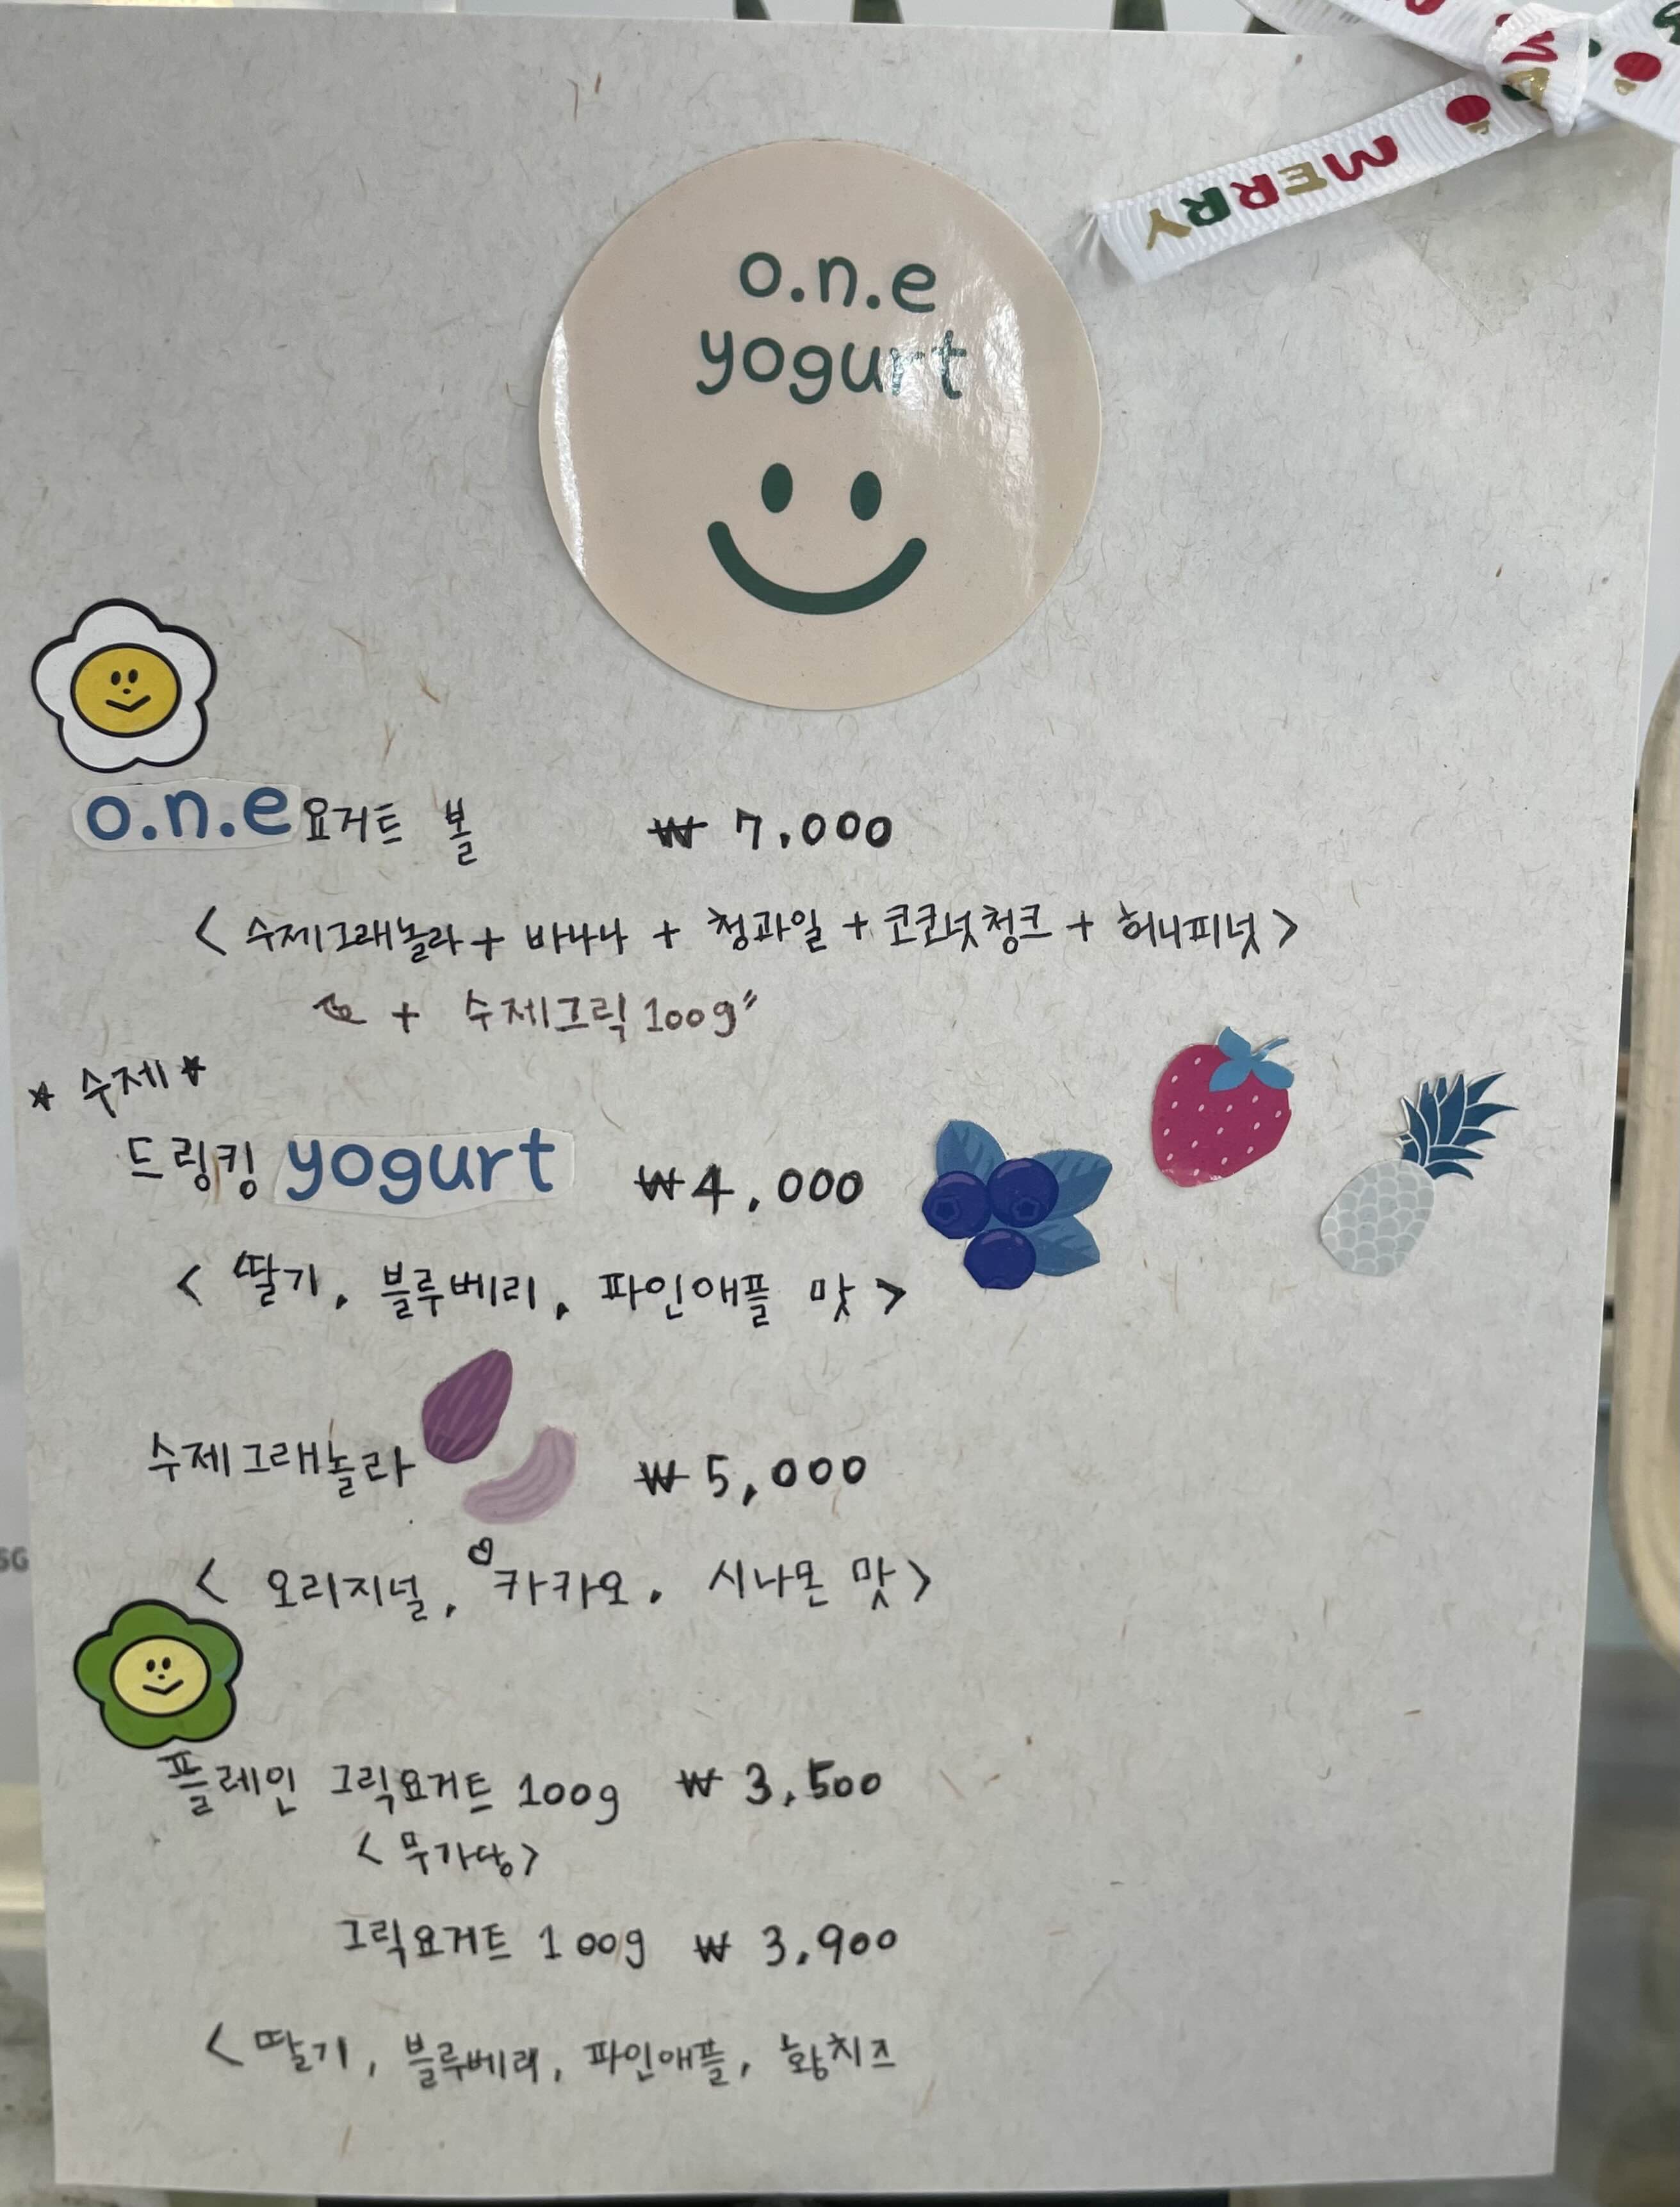 MERRY
o.n.e
yogurt
o.n.e 요거트 볼 ₩ 7,000
< 수제그래놀라 + 바나나 + 청과일 + 코코넛청크 + 허니피넛 >
+ 수제그릭 100g"
* 수제 *
드링킹 yogurt ₩4,000
< 딸기, 블루베리, 파인애플 맛 >
수제그래놀라 ₩ 5,000
< 오리지널, 카카오, 시나몬 맛 >
플레인 그릭요거트 100g ₩ 3,500
< 무가당 >
그릭요거트 100g ₩ 3,900
< 딸기, 블루베리, 파인애플, 황치즈
SG